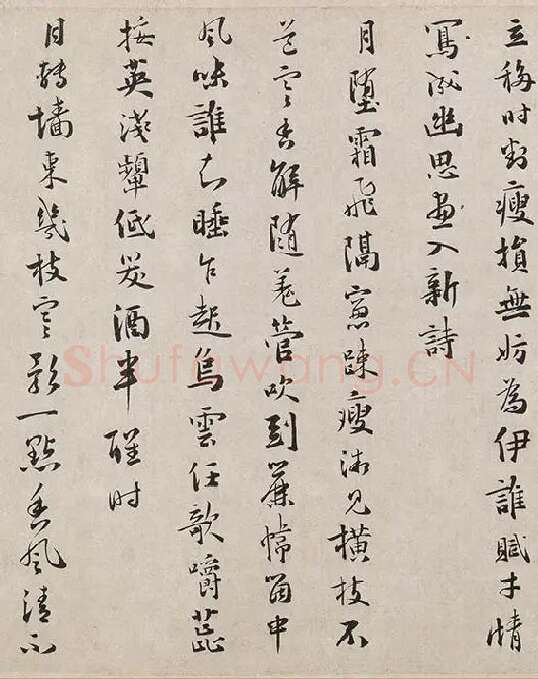 立移時判瘦損無妨為伊誰賦才情
寫成幽思畫入新詩
月墮霜飛隔窻踈瘦微見横枝不
道寒香解隨羌管吹到簾幃箇中
風味誰知睡乍起烏雲任欹嚼蕋
挼英淺顰低笑酒半醒時
月轉墻東幾枝寒影一點香風清不
Shufawang.CN